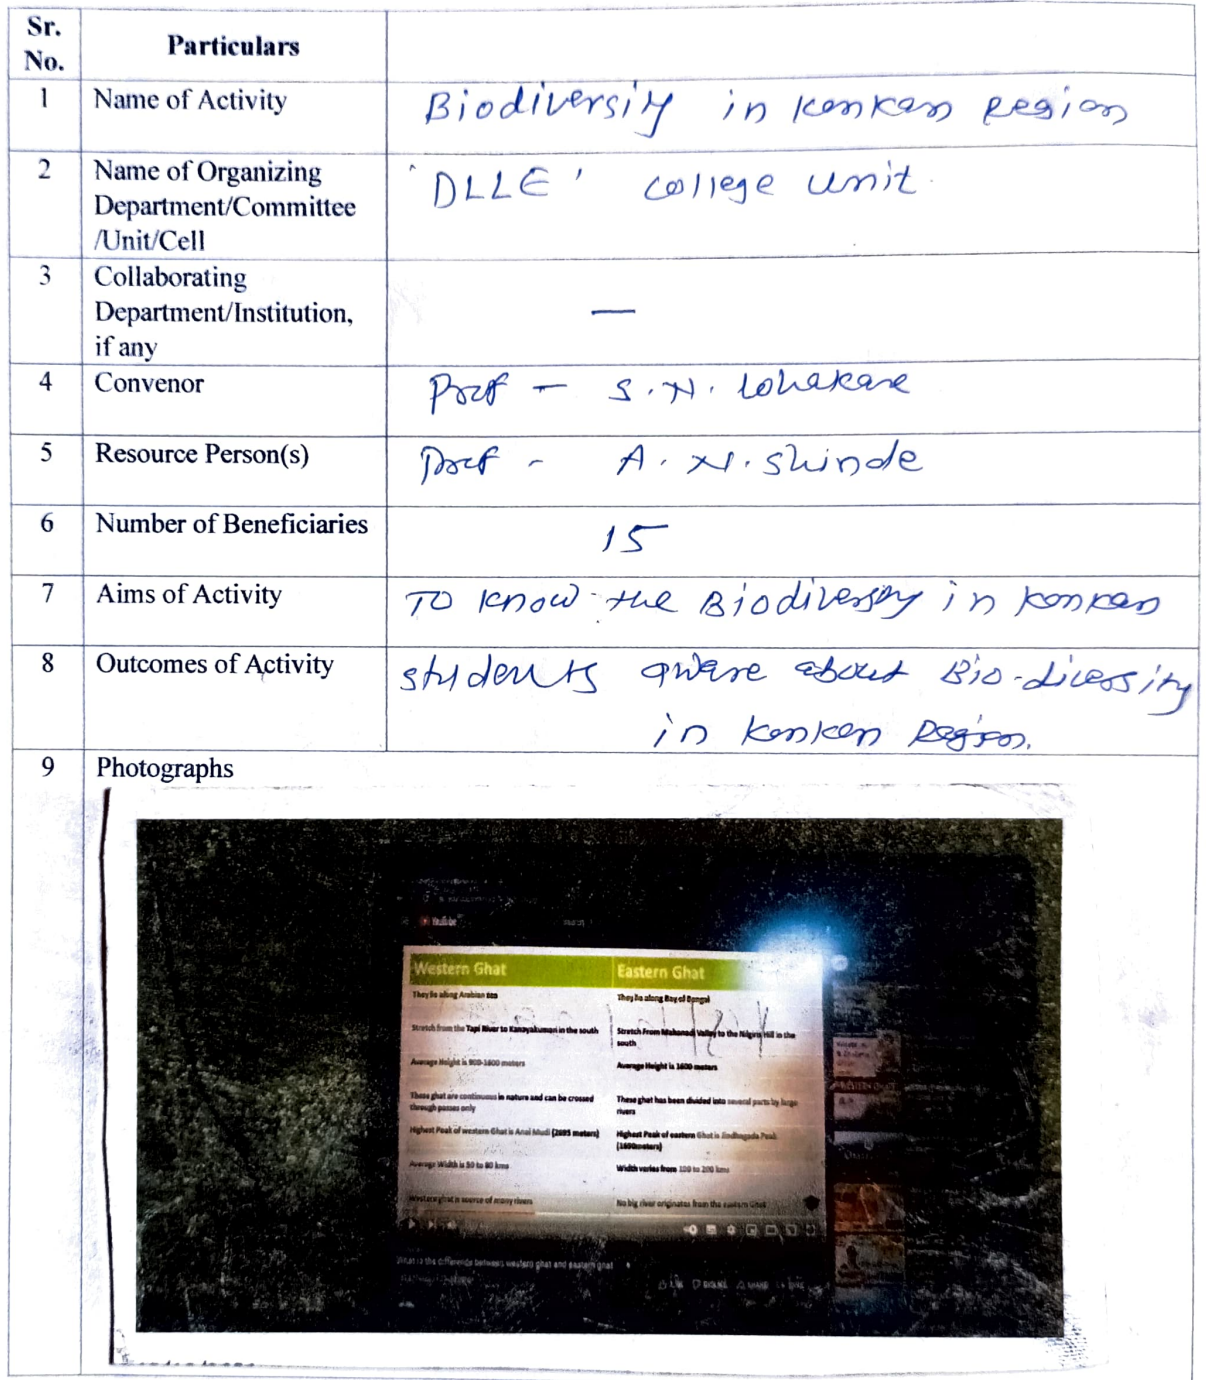 Sr.
No.
Particulars
1 Name of Activity Biodiversity in Konkan Region
2 Name of Organizing
Department/Committee
/Unit/Cell
'DLLE' College Unit.
3 Collaborating
Department/Institution,
if any
—
4 Convenor Prof - S.N. Lohakare
5 Resource Person(s) Prof - A.N. Shinde
6 Number of Beneficiaries 15
7 Aims of Activity TO Know the Biodiversity in Konkan
8 Outcomes of Activity students aware about Bio-diversity
in Konkan Region.
9 Photographs
YouTube
Western Ghat Eastern Ghat
They lie along Arabian sea They lie along Bay of Bengal
Stretch from the Tapi River to Kanayakumari in the south Stretch From Mahanadi Valley to the Nilgiris Hill in the
south
Average Height is 900-1600 meters Average Height is 1600 meters
These ghat are continuous in nature and can be crossed
through passes only
These ghat has been divided into several parts by large
rivers
Highest Peak of western Ghat is Anai Mudi (2695 meters) Highest Peak of eastern Ghat is Jindhagada Peak
(1690meters)
Average Width is 50 to 80 kms Width varies from 100 to 200 kms
Western ghat is source of many rivers No big river originates from the eastern Ghat
What is the difference between western ghat and eastern ghat